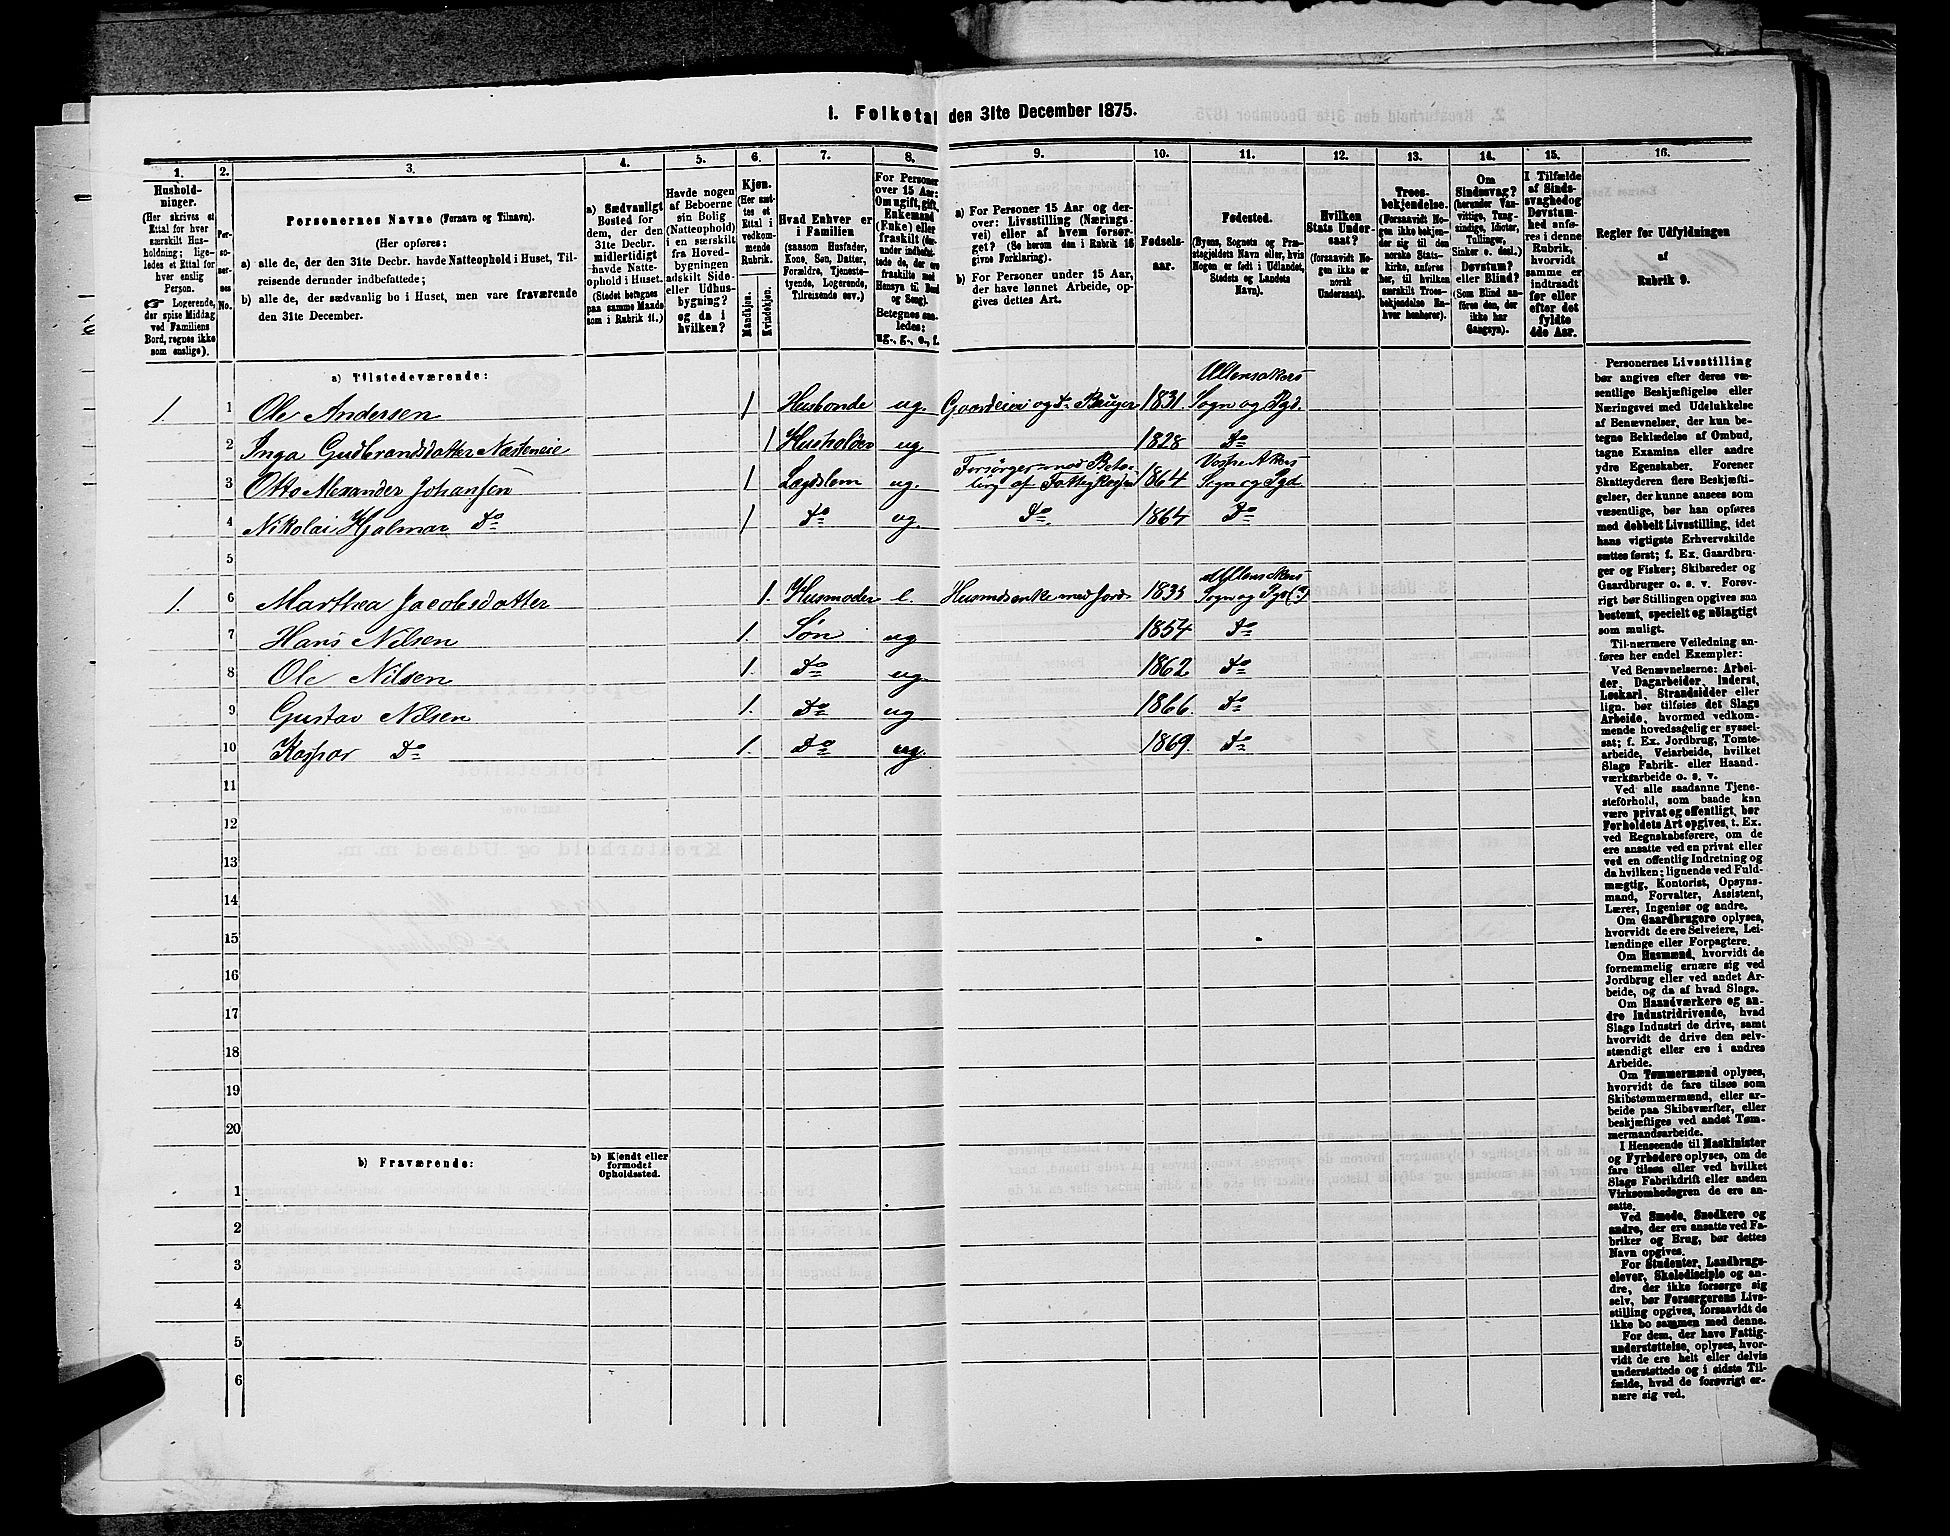 1. Folketal den 31te December 1875.
1.
2.
3.
4.
5.
6.
7.
8.
9.
10.
11.
12.
13.
14.
15.
16.
Hushold-
ninger.
(Her skrives et
Ettal for hver
særskilt Hus-
holdning; lige-
ledes et Ettal for
enslig
Person.
☞ Logerende,
der spise Middag
ved Familiens
Bord, regnes ikke
som enslige).
Per-
so-
ner-
nes
No.
Personernes Navne (Fornavn og Tilnavn).
(Her opføres:
a) alle de, der den 31te Decbr. havde Natteophold i Huset, Til-
reisende derunder indbefattede;
b) alle de, der sædvanlig bo i Huset, men vare fraværende
den 31te December.
a) Sædvanligt
Bosted for
dem, der den
31te Decbr.
midlertidigt
havde Natte-
ophold i Huset.
(Stedet betegnes
paa samme Maade
som i Rubrik 11.)
Havde nogen
af Beboerne
sin Bolig
(Natteophold)
i en særskilt
fra Hoved-
bygningen
adskilt Side-
eller Udhus-
bygning?
og da i
hvilken?
Kjøn.
(Her sæt-
tes et
Ettal i
vedkom-
mende
Rubrik.
Mandkjøn.
Kvindekjøn.
Hvad Enhver er
i Familien
(saasom Husfader,
Kone, Søn, Datter,
Forældre, Tjeneste-
tyende, Logerende,
Tilreisende osv.)
For Personer
over 15 Aar:
Om ugift, gift,
Enkemand
(Enke) eller
fraskilt (der-
under indbefat-
tede de, der ere
fraskilte
Hensyn til Bord
og Seng).
Betegnes saa-
ledes:
ug., g., e., f.
a) For Personer 15 Aar og der-
over: Livsstilling (Nærings-
vei) eller af hvem forsør-
get? (Se herom den i Rubrik 16
givne Forklaring).
b) For Personer under 15 Aar,
der have lønnet Arbeide, op-
gives dettes Art.
Fødsels-
aar.
Fødested.
(Byens, Sognets og Præ-
stegjeldets Navn eller, hvis
Nogen er født i Udlandet,
Stedets og Landets
Navn).
Hvilken
Stats Under-
saat?
(forsaavidt No-
gen ikke er
norsk
Undersaat).
Troes-
bekjendelse.
(Forsaavidt No-
gen ikke bekjen-
der sig til den
norske Stats-
kirke, anføres
her, til hvilken
særskilt Troes-
bekjendelse En-
hver henhører).
Om
Sindssvag?
(herunder Van-
vittige, Tung-
sindige, Idioter,
Tullinger,
Sinker o. desl.)
Døvstum?
eller Blind?
(Som Blind an-
føres den, der
ikke har
Gangsyn).
I Tilfælde
af Sinds-
svaghed og
Døvstum-
hed anfø-
res i denne
Rubrik,
hvorvidt
samme er
indtraadt
før eller
efter det
fyldte
4de Aar.
Regler for Udfyldningen
af
Rubrik 9.
a) Tilstedeværende:
1 1 Ole Andersen 1 Husbonde ug. Gaardeier og do Bruger 1831 Ullensakers Sogn og Pgd.
2 Inga Gudbrandsdatter Næsteneie 1 Husholder ug. 1828 Do
3 Otto Alexander Johansen 1 Lægdslem ug. Forsørges mod Beta-
ling af 1864 Vestre Akers Sogn og Pgd
4 Nikolai Hjalmar Do 1 Do ug Do 1864 Do
5
1. 6 Marthea Jacobsdatter 1. Husmoder e. Husmdsenke med Jord 1835 Ullensakers Sogn og Pgd
7 Hans Nilsen 1. Søn ug 1854 Do
8 Ole Nilsen 1. Do ug 1862 Do
9 Gustav Nilsen 1. Do ug 1866. Do
10 Kaspar Do 1. Do ug. 1869. Do
11
12
13
14
15
16
17
18
19
20
b) Fraværende:
b) Kjendt eller
formodet
Opholdssted.
1
2
3
4
5
6
Personernes Livsstilling
bør angives efter deres væ-
sentlige Beskjæftigelse eller
Næringsvei med Udelukkelse
af Benævnelser, der kun be-
tegne Beklædelse af Ombud,
tagne Examina eller andre
ydre Egenskaber. Forener
Skatteyderen flere Beskjæfti-
gelser, der kunne ansees som
væsentlige, bør han opføres
med dobbelt Livsstilling, idet
hans vigtigste Erhvervskilde
sættes først; f. Ex. Gaardbru-
ger og Fisker; Skibsreder og
Gaardbruger o. s. v. Forøv-
rigt bør Stillingen opgives saa
bestemt, specielt og nøiagtigt
som muligt.
Til nærmere Veiledning an-
føres her endel Exempler:
Ved Benævnelserne: Arbei-
der, Dagarbeider, Inderst,
Løskarl, Strandsidder eller
lign. bør tilføies det Slags
Arbeide, hvormed vedkom-
mende hovedsagelig er syssel-
sat; f. Ex. Jordbrug, Tomte-
arbeide, Veiarbeide, hvilket
Slags Fabrik- eller Haand-
værksarbeide o. s. v.
Ved alle saadanne Tjene-
steforhold, som baade kan
være privat og offentligt, bør
Forholdets Art opgives, t. Ex.
ved Regnskabsførere, om de
ere ansatte ved en privat eller
ved en offentlig Indretning og
da hvilken; lignende ved Fuld-
mægtig, Kontorist, Opsyns-
mand, Forvalter, Assistent,
Lærer, Ingeniør og andre.
Om Gaardbrugere oplyses,
hvorvidt de ere Selveiere, Lei-
lændinge eller Forpagtere.
Om Husmænd, hvorvidt de
fornemmelig ernære sig ved
Jordbrug eller ved andet Ar-
beide, og da af hvad Slags.
Om Haandværkere og an-
dre Industridrivende, hvad
Slags Industri de drive, samt
hvorvidt de drive den selv-
stændigt eller ere i andres
Arbeide.
Om Tømmermænd oplyses,
hvorvidt de fare tilsøs som
Skibstømmermænd, eller ar-
beide paa Skibsværfter, eller
beskjæftiges ved andet Tøm-
mermandsarbeide.
I Henseende til Maskinister
og Fyrbødere oplyses, om de
fare tilsøs eller ved hvilket
Slags Fabrikdrift eller anden
Virksomhedsgren de ere an-
satte.
Ved Smede, Snedkere og
andre, der ere ansatte ved Fa-
briker og Brug, bør dettes
Navn opgives.
For Studenter, Landbrugs-
elever, Skoledisciple og an-
dre, der ikke forsørge sig
selv, bør Forsørgerens Livs-
stilling opgives, forsaavidt de
ikke bo sammen med denne.
For dem, der have Fattig-
understøttelse, oplyses, hvor-
vidt de ere helt eller delvis
understøttede og i sidste Til-
fælde, hvad de forøvrigt er-
nære sig ved.